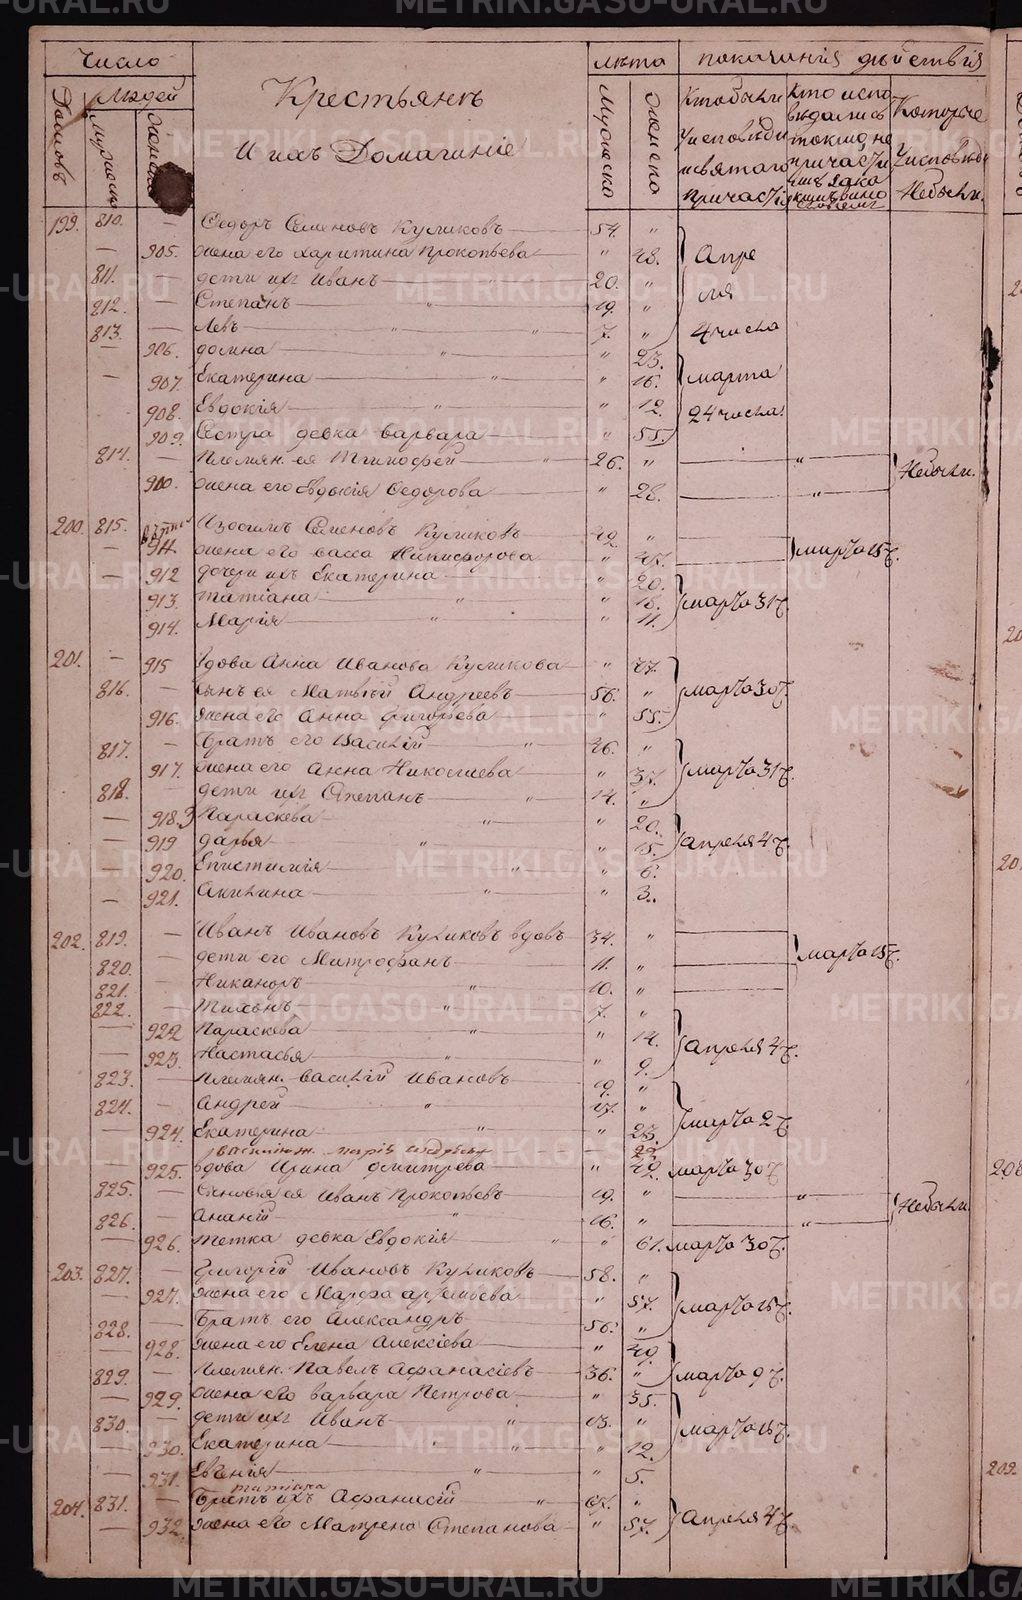 Число
Людей
Домовъ
Мужеска
Женска
Крестьянъ
И ихъ Домашніе
лѣта
Мужеска
Женска
показанія дѣйствія
Кто были
Уисповѣди
исвятаго
Причастія
Кто испо
вѣдались
токмо не
причасти
лись
Которые
Уисповѣди
Небыли.
199. 810. — Ѳедоръ Семеновъ Куликовъ 54. "
— 905. жена его Харитина Прокопьева " 48. Апре
811. — дети ихъ Иванъ 20. "
812. — Степанъ " 19. " ля
813. — Левъ " " 7. " 4 числа
— 906. " 23.
— 907. Екатерина " " 16. марта
908. Евдокія " " 12. 24 числа
909. Сестра девка варвара " 55.
814. — Племян. ея Тимофей " 26. " " Небыли.
910. жена его Евдокія Ѳедорова " 28. "
200. 815. Изосимъ Семеновъ Куликовъ 49. "
— 911. жена его васса Никифорова " 47. марта 15 ч.
— 912 дочери ихъ Екатерина " 20.
913. татіана " " 18. марта 31 ч.
914. Марія " " 11.
201. — 915 Вдова Анна Иванова Куликова " 77.
816. — Сынъ ея Матвій Андреевъ 56. " марта 30 ч.
916. жена его Анна Григорьева " 55.
817. — Братъ его Василій " 46. "
917. жена его Анна Николаева " 37. марта 31 ч.
818. — дети ихъ Степанъ " 14. "
— 918. Параскева " " 20.
— 919 дарья " " 15. апреля 4 ч.
— 920. Епистимія " " 6.
— 921. Акилина " " 3.
202. 819. — Иванъ Ивановъ Куликовъ вдовъ 34. "
820. — дети его Митрофанъ 11. " марта 15 ч.
821. — Никаноръ " 10. "
822. — Тихонъ " 7. "
— 922 Параскева " " 14.
— 923. Настасья " " 9. апреля 4 ч.
823. — племян. василій Ивановъ 19. "
824. — Андрей " 17. "
— 924. Екатерина " " 23. марта 2 ч.
— 925. вдова Ирина дмитрева " 49. марта 30 ч.
825. — Сыновья ея Иванъ Прокопьевъ 19. " "
826. — Ананій " 16. " " Небыли.
— 926. тетка девка Евдокія " " 61. марта 30 ч.
203. 827. — Григорій Ивановъ Куликовъ 58. "
— 927. жена его Марфа " 57. марта 15 ч.
828. — Братъ его Александръ 56. "
— 928. жена его Елена Алексіева " 49.
829. — Племян. Павелъ Афанасіевъ 36. " марта 9 ч.
— 929. жена его варвара Петрова " 35.
830. — дети ихъ Иванъ " 13. "
— 930. Екатерина " " 12. марта 15 ч.
— 931. Евгенія " " 5.
татіана
204. 831. — Братъ ихъ Афанасій " 67. "
— 932. жена его Матрена Степанова " 57. Апреля 4 ч.
METRIKI.GASO-URAL.RU